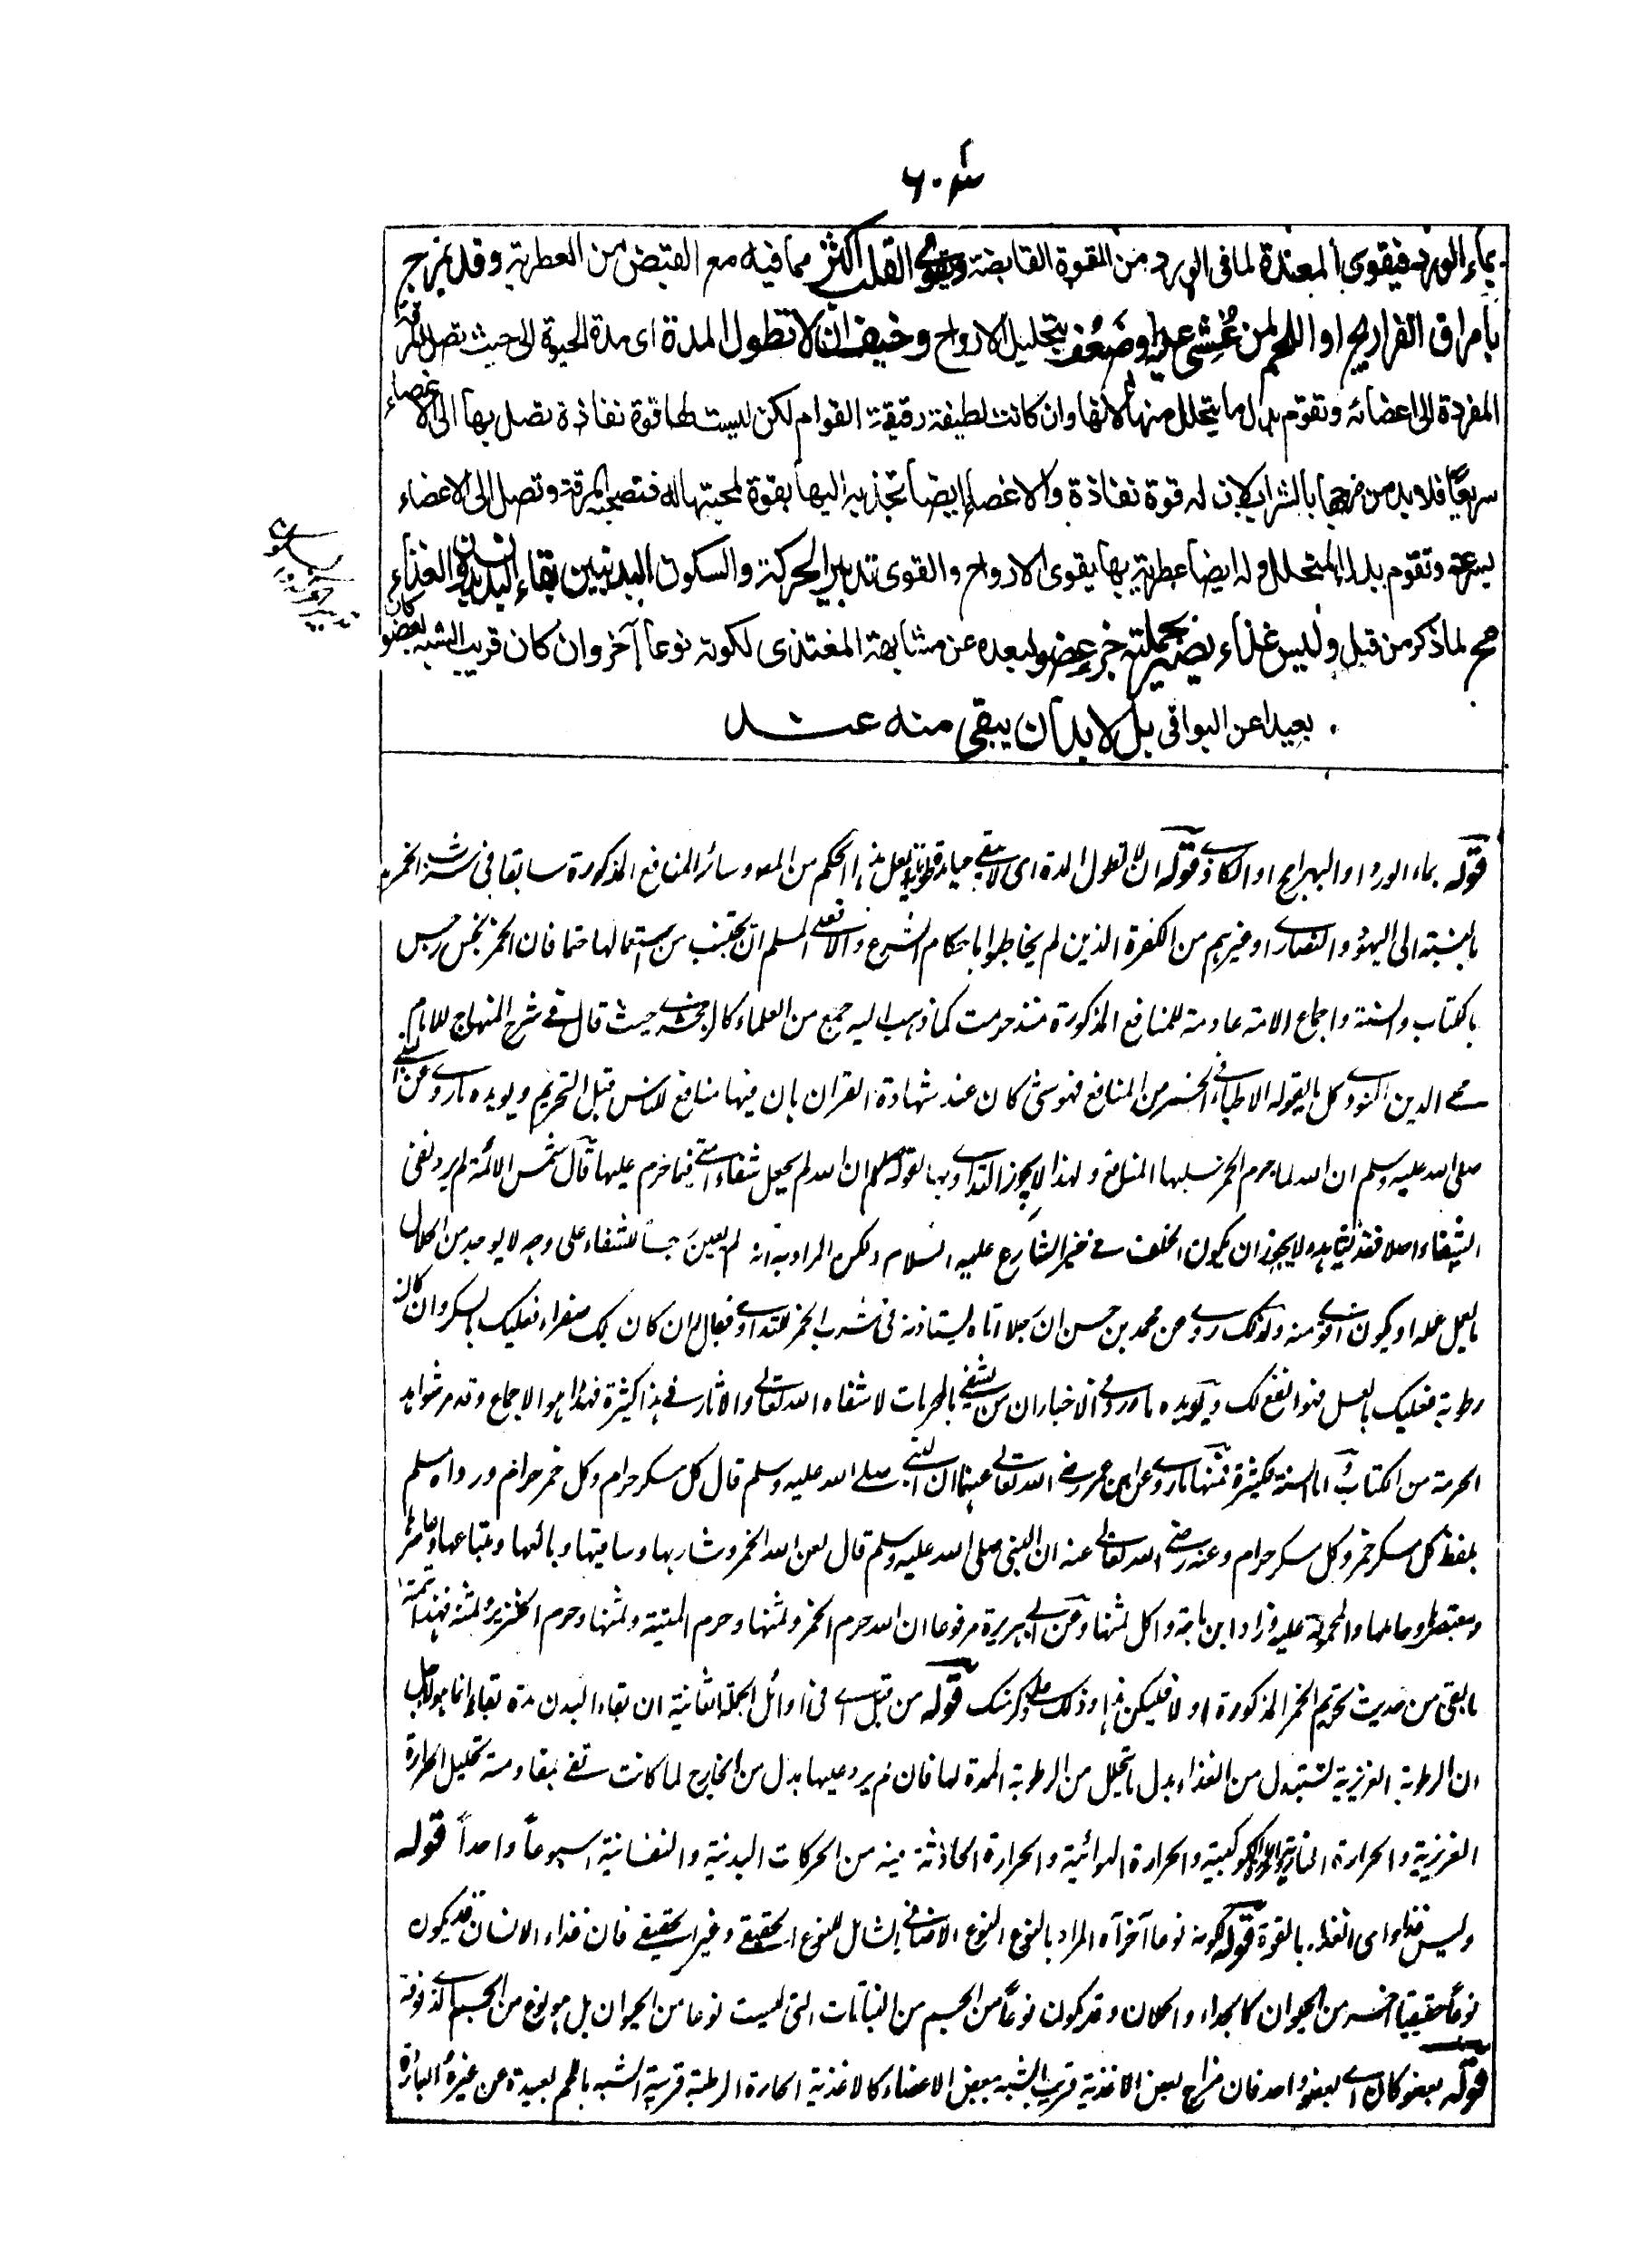 ٦٠
بماء الورد فيقوى المعدة لما فى الورد من القوة القابضة ويقوى القلب اكثر مما فيه مع القبض من العطرية وقد يمزج
بأمراق الفراريج او اللحم لمن غُشى عليه وضَعُف بتحليل الارواح وخيف ان لا تطول المدة اى مدة الحيوة الى حيث تصل المرقة
المفردة الى اعضائه وتقوّم بدل ما يتحلل منها لانها وان كانت لطيفة رقيقة القوام لكن ليست لها قوة نفاذة تصل بها الى الاعضاء
سريعًا فلا بد من مزجها بالشراب لان له قوة نفاذة والاعضاء ايضا تجذبه اليها بقوة لمحبتها له فتصحبه المرقة وتصل الى الاعضاء
بسرعة وتقوّم بدل المتحلل وله ايضا عطرية بها يقوى الارواح والقوى تدبير الحركة والسكون البدنيين بقاء البدن بدون الغذاء
مح لما ذكر من قبل وليس غذاء يصير بجملته جزء عضو لبعده عن مشابهة المغتذى لكونه نوعا آخر وان كان قريب الشبه بعضو كان
بعيدا عن البواقى بل لا بد ان يبقى منه عند
قوله بماء الورد او البهرامج او الكاذى قوله ان لا تطول المدة اى لا يبقى حياته الحكم من المص وسائر المنافع المذكورة سابقا فى شرب الخمر
بالنسبة الى اليهود والنصارى او غيرهم من الكفرة الذين لم يخاطبوا باحكام الشرع والا فعلى المسلم ان يجتنب من استعمالها حتما فان الخمر نجس رجس
بالكتاب والسنة واجماع الامة عادمة للمنافع المذكورة منذ حرمت كما ذهب اليه جمع من العلماء حيث قال فى شرح المنهاج للامام
محى الدين النووى كل ما يقوله الاطباء فى الخمر من المنافع فهو شئ كان عند شهادة القران بان فيها منافع للناس قبل التحريم ويؤيده ما روى عن النبى
صلى الله عليه وسلم ان الله لما حرم الخمر سلبها المنافع ولهذا لا يجوز التداوى بها لقوله صلعم ان الله لم يجعل شفاء امتى فيما حرم عليها قال شمس الائمة لم يرد نفى
الشفاء اصلا فقد نشاهده ولا يجوز ان يكون الخلف فى خبر الشارع عليه السلام ولكن المراد به انه لم يعين جنسا للشفاء على وجه لا يوجد من الحلال
ما يعمل عمله او يكون اقوى منه ولذلك روى عن محمد بن حسن ان رجلا اتاه يستاذنه فى شرب الخمر للتداوى فقال ان كان بك صفراء فعليك بالسكر وان كان
رطوبة فعليك بالعسل فهو انفع لك ويؤيده ما ورد فى الاخبار ان من يشتفى بالمحرمات لا شفاه الله تعالى والاثار فى هذا كثيرة فهذا هو الاجماع وقد مر شواهد
الحرمة من الكتاب واما السنة فكثيرة فمنها ما روى عن ابن عمر رضى الله تعالى عنهما ان النبى صلى الله عليه وسلم قال كل مسكر حرام وكل خمر حرام ورواه مسلم
بلفظ كل مسكر خمر وكل مسكر حرام وعنه رضى الله تعالى عنه ان النبى صلى الله عليه وسلم قال لعن الله الخمر وشاربها وساقيها وبائعها ومبتاعها وعاصرها
ومعتصرها وحاملها والمحمولة عليه وزاد ابن ماجة واكل ثمنها وعن ابى هريرة مرفوعا ان الله حرم الخمر وثمنها وحرم الميتة وثمنها وحرم الخنزير وثمنه فهذا تتمة
ما بقى من حديث تحريم الخمر المذكورة اولا فليكن هذا وذلك على ذكر منك قوله من قبل اى فى اوائل الجملة الثانية ان بقاء البدن مدة بقاء انما هو لاجل
ان الرطوبة الغريزية تستبدل من الغذاء بدل ما تحلل من الرطوبة الممدة لها فان لم يرد عليها بدل من الخارج لما كانت تفى بمقاومة تحليل الحرارة
الغريزية والحرارة النارية والكوكبية والحرارة الهوائية والحرارة الحادثة فيه من الحركات البدنية والنفسانية اسبوعا واحدا قوله
وليس غذاء اى الغذاء بالقوة قوله لكونه نوعا آخر آه المراد بالنوع النوع الاضافى الشامل للنوع الحقيقى وغير الحقيقى فان غذاء الانسان قد يكون
نوعا حقيقيا اخر من الحيوان كالجداء والحملان وقد يكون نوعا من الجسم من النباتات التى ليست نوعا من الحيوان بل هو نوع من الجسم الذى فوقه
قوله بعضو كان اى بعضو واحد فان مزاج بعض الاغذية قريب الشبه ببعض الاعضاء كالاغذية الحارة الرطبة قريبة الشبه باللحم بعيدة عن غيره